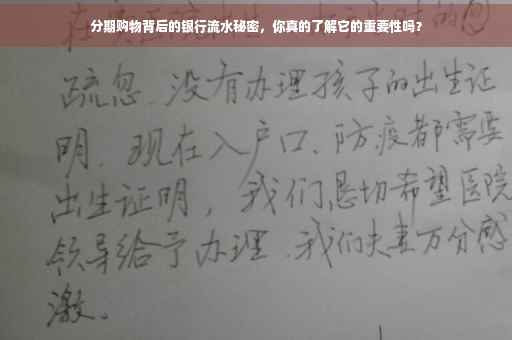 分期购物背后的银行流水秘密，你真的了解它的重要性吗？
疏忽、没有办理孩子的出生证
明、现在入户口、防疫都需要
出生证明，我们恳切希望医院
领导给予办理、我们夫妻万分感
激。